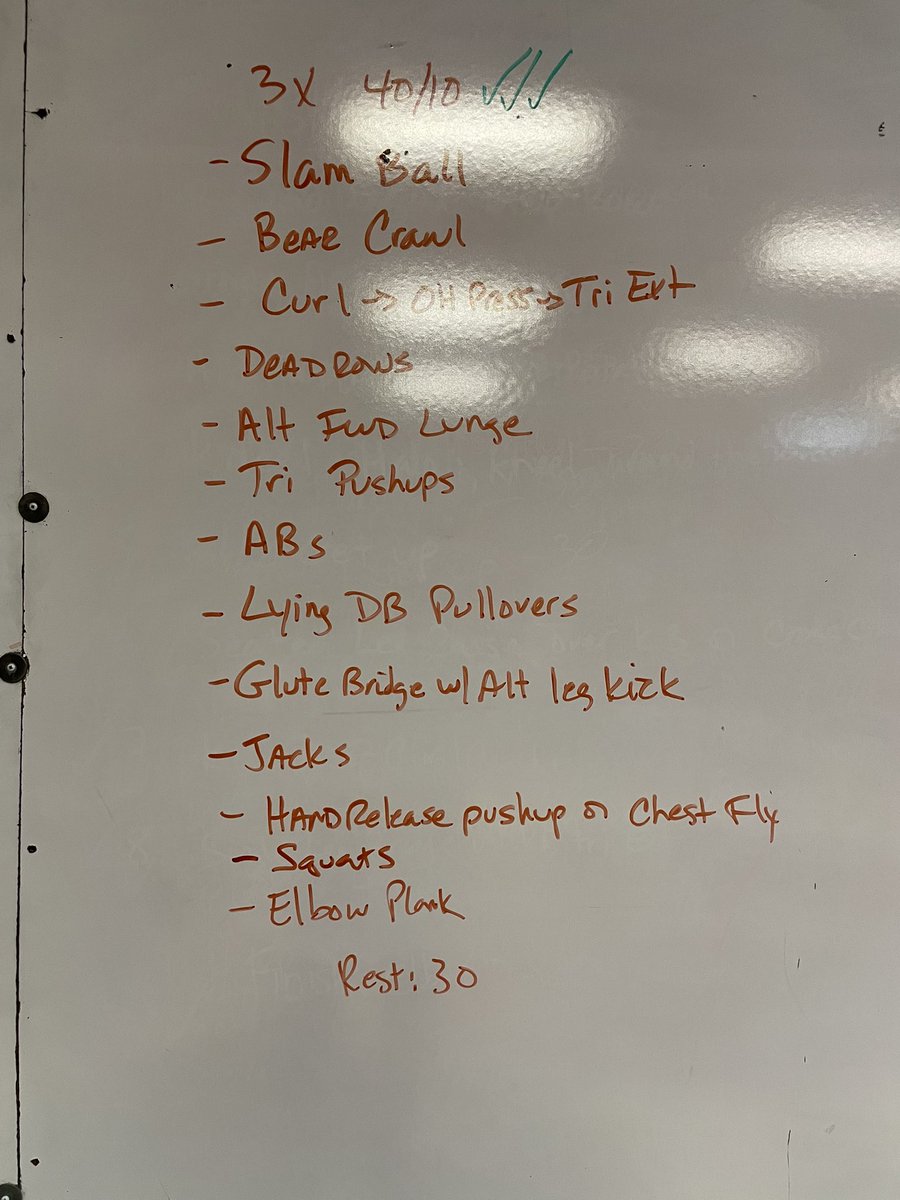 3X 40/10 ✓✓✓
- Slam Ball
- Bear Crawl
- Curl → OH Press → Tri Ext
- DEADROWS
- Alt Fwd Lunge
- Tri Pushups
- ABs
- Lying DB Pullovers
- Glute Bridge w/ Alt leg kick
- JACKS
- HAND Release pushup or Chest Fly
- Squats
- Elbow Plank
Rest: 30